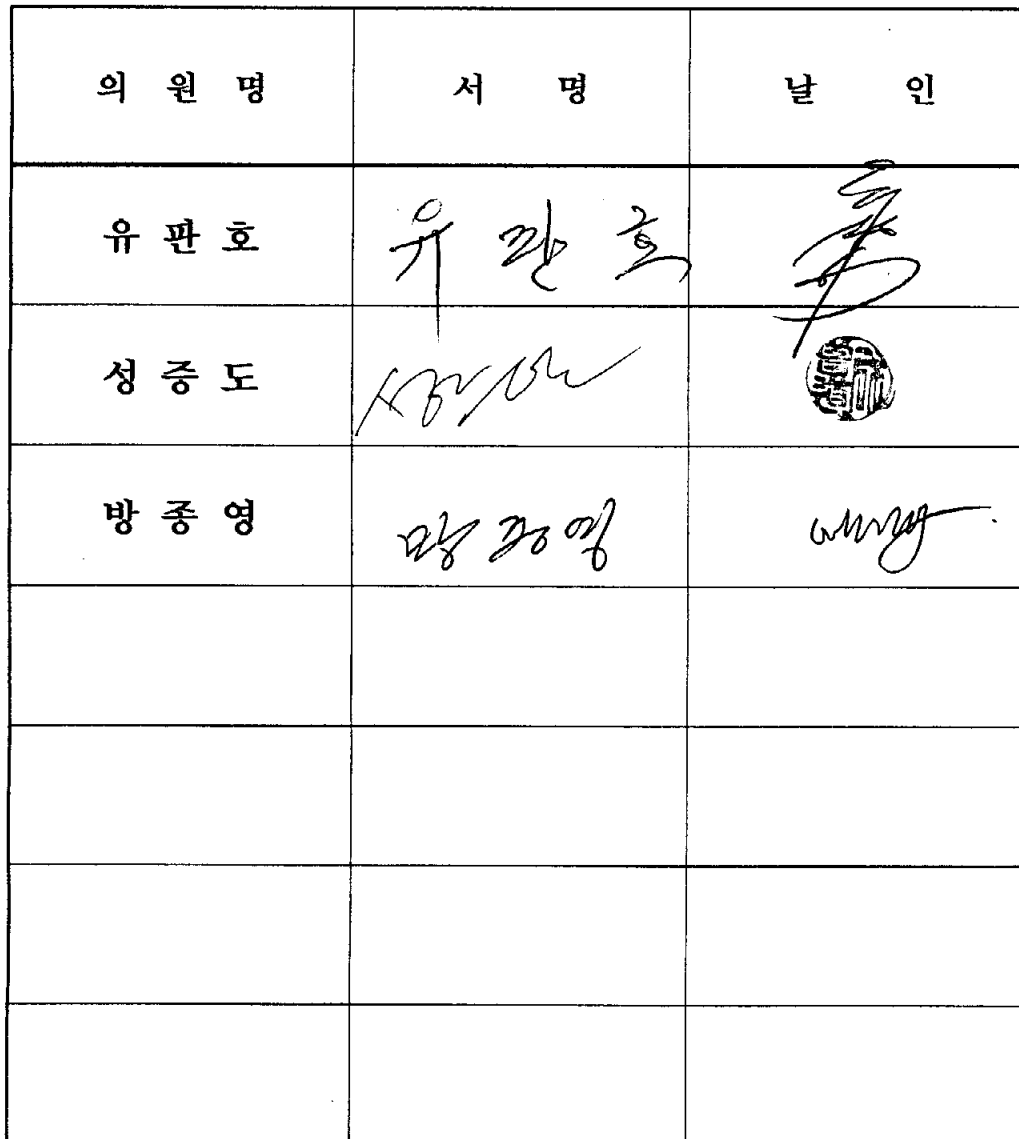 의 원 명 서 명 날 인
유 판 호 유 판 호
성 증 도
방 종 영 방 종 영